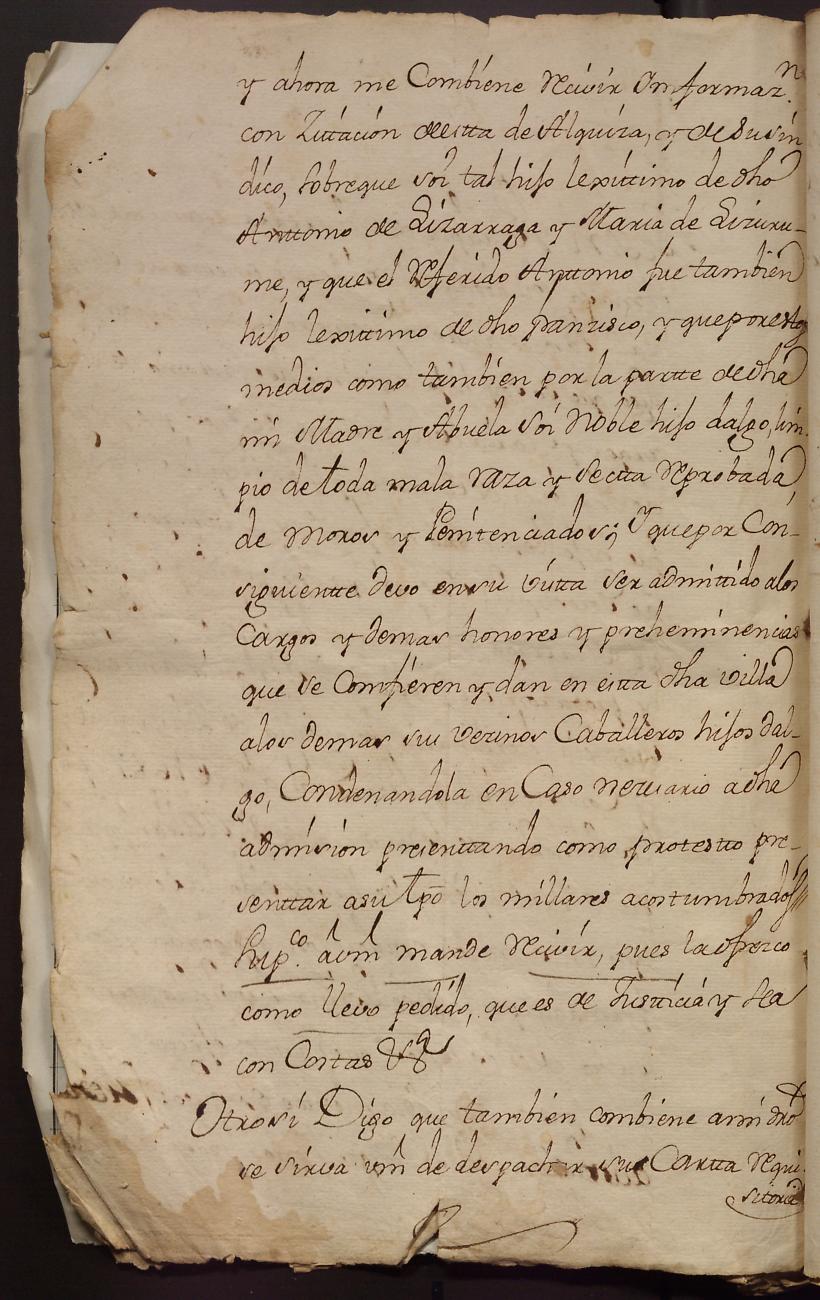 y ahora me Combiene Recivir Informaz.n
con Zittación de esta de Alquiza, y de su sin
dico, sobre que soi tal hijo lexittimo de dho
Anttonio de Lizarraga y Maria de Eizuru-
me, y que el Referido Anttonio fue tambien
hijo lexittimo de dho franzisco, y que por estos
medios como tambien por la partte de dha
mi Madre y Abuela soi Noble hijo dalgo, lim-
pio de toda mala raza y sectta Reprobada
de Moros y Penitenciados; Y que por Con-
siguientte devo en su virtta ser admittido a los
Cargos y demas honores y preheminencias
que se Confieren y dan en estta dha villa
a los demas sus vezinos Caballeros hijos dal-
go, Condenandola en Caso nezesario a dha
admision presenttando como protestto pre-
senttar a su tpo los millares acostumbrados
Supco. a vm mande Recivir, pues la ofrezco
como llevo pedido, que es de Justticia y sea
con Costas &a
Otrosi Digo que tambien combiene a mi dro
se sirva vm de despachar su Cartta Requi-
sitoria